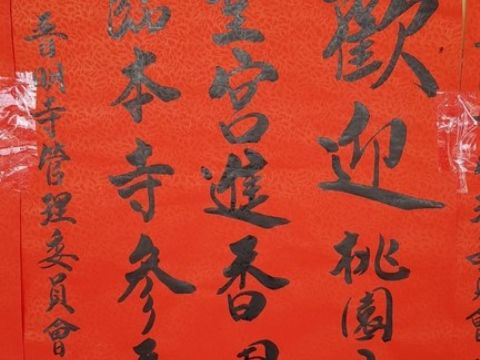 歡迎桃園
宮進香
臨本寺參
普明寺管理委員會